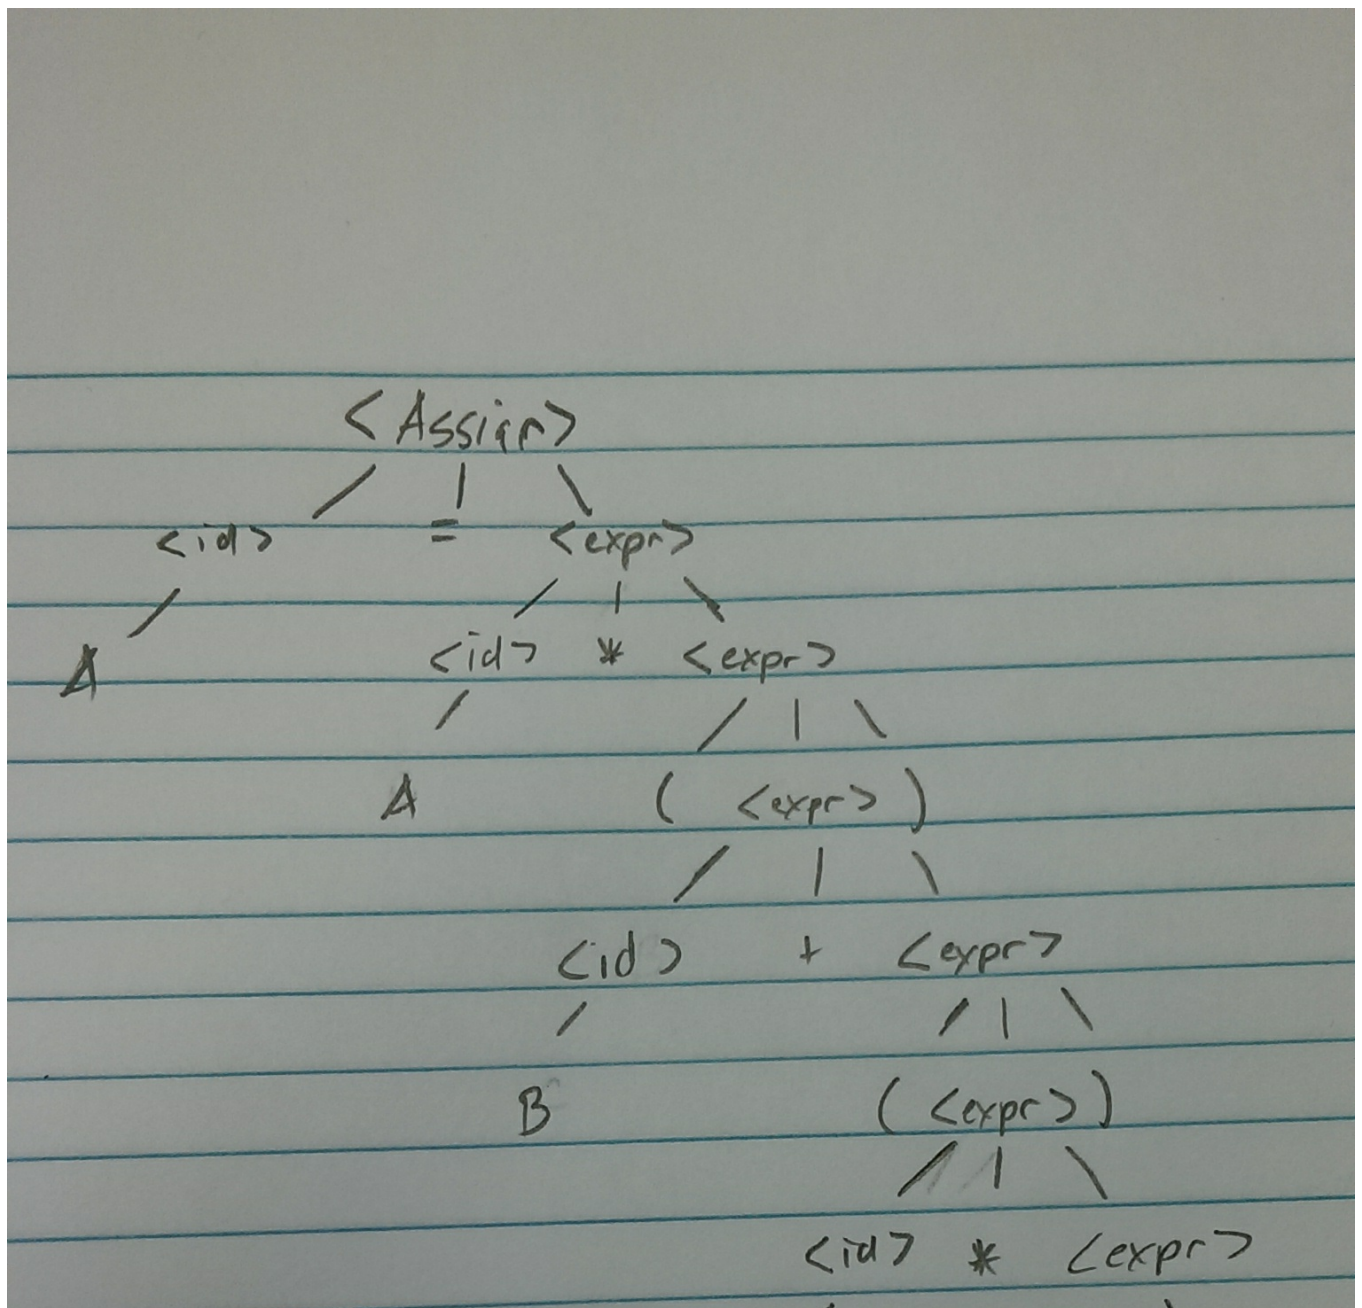 <Assign>
<id> = <expr>
A <id> * <expr>
A ( <expr> )
<id> + <expr>
B ( <expr> )
<id> * <expr>